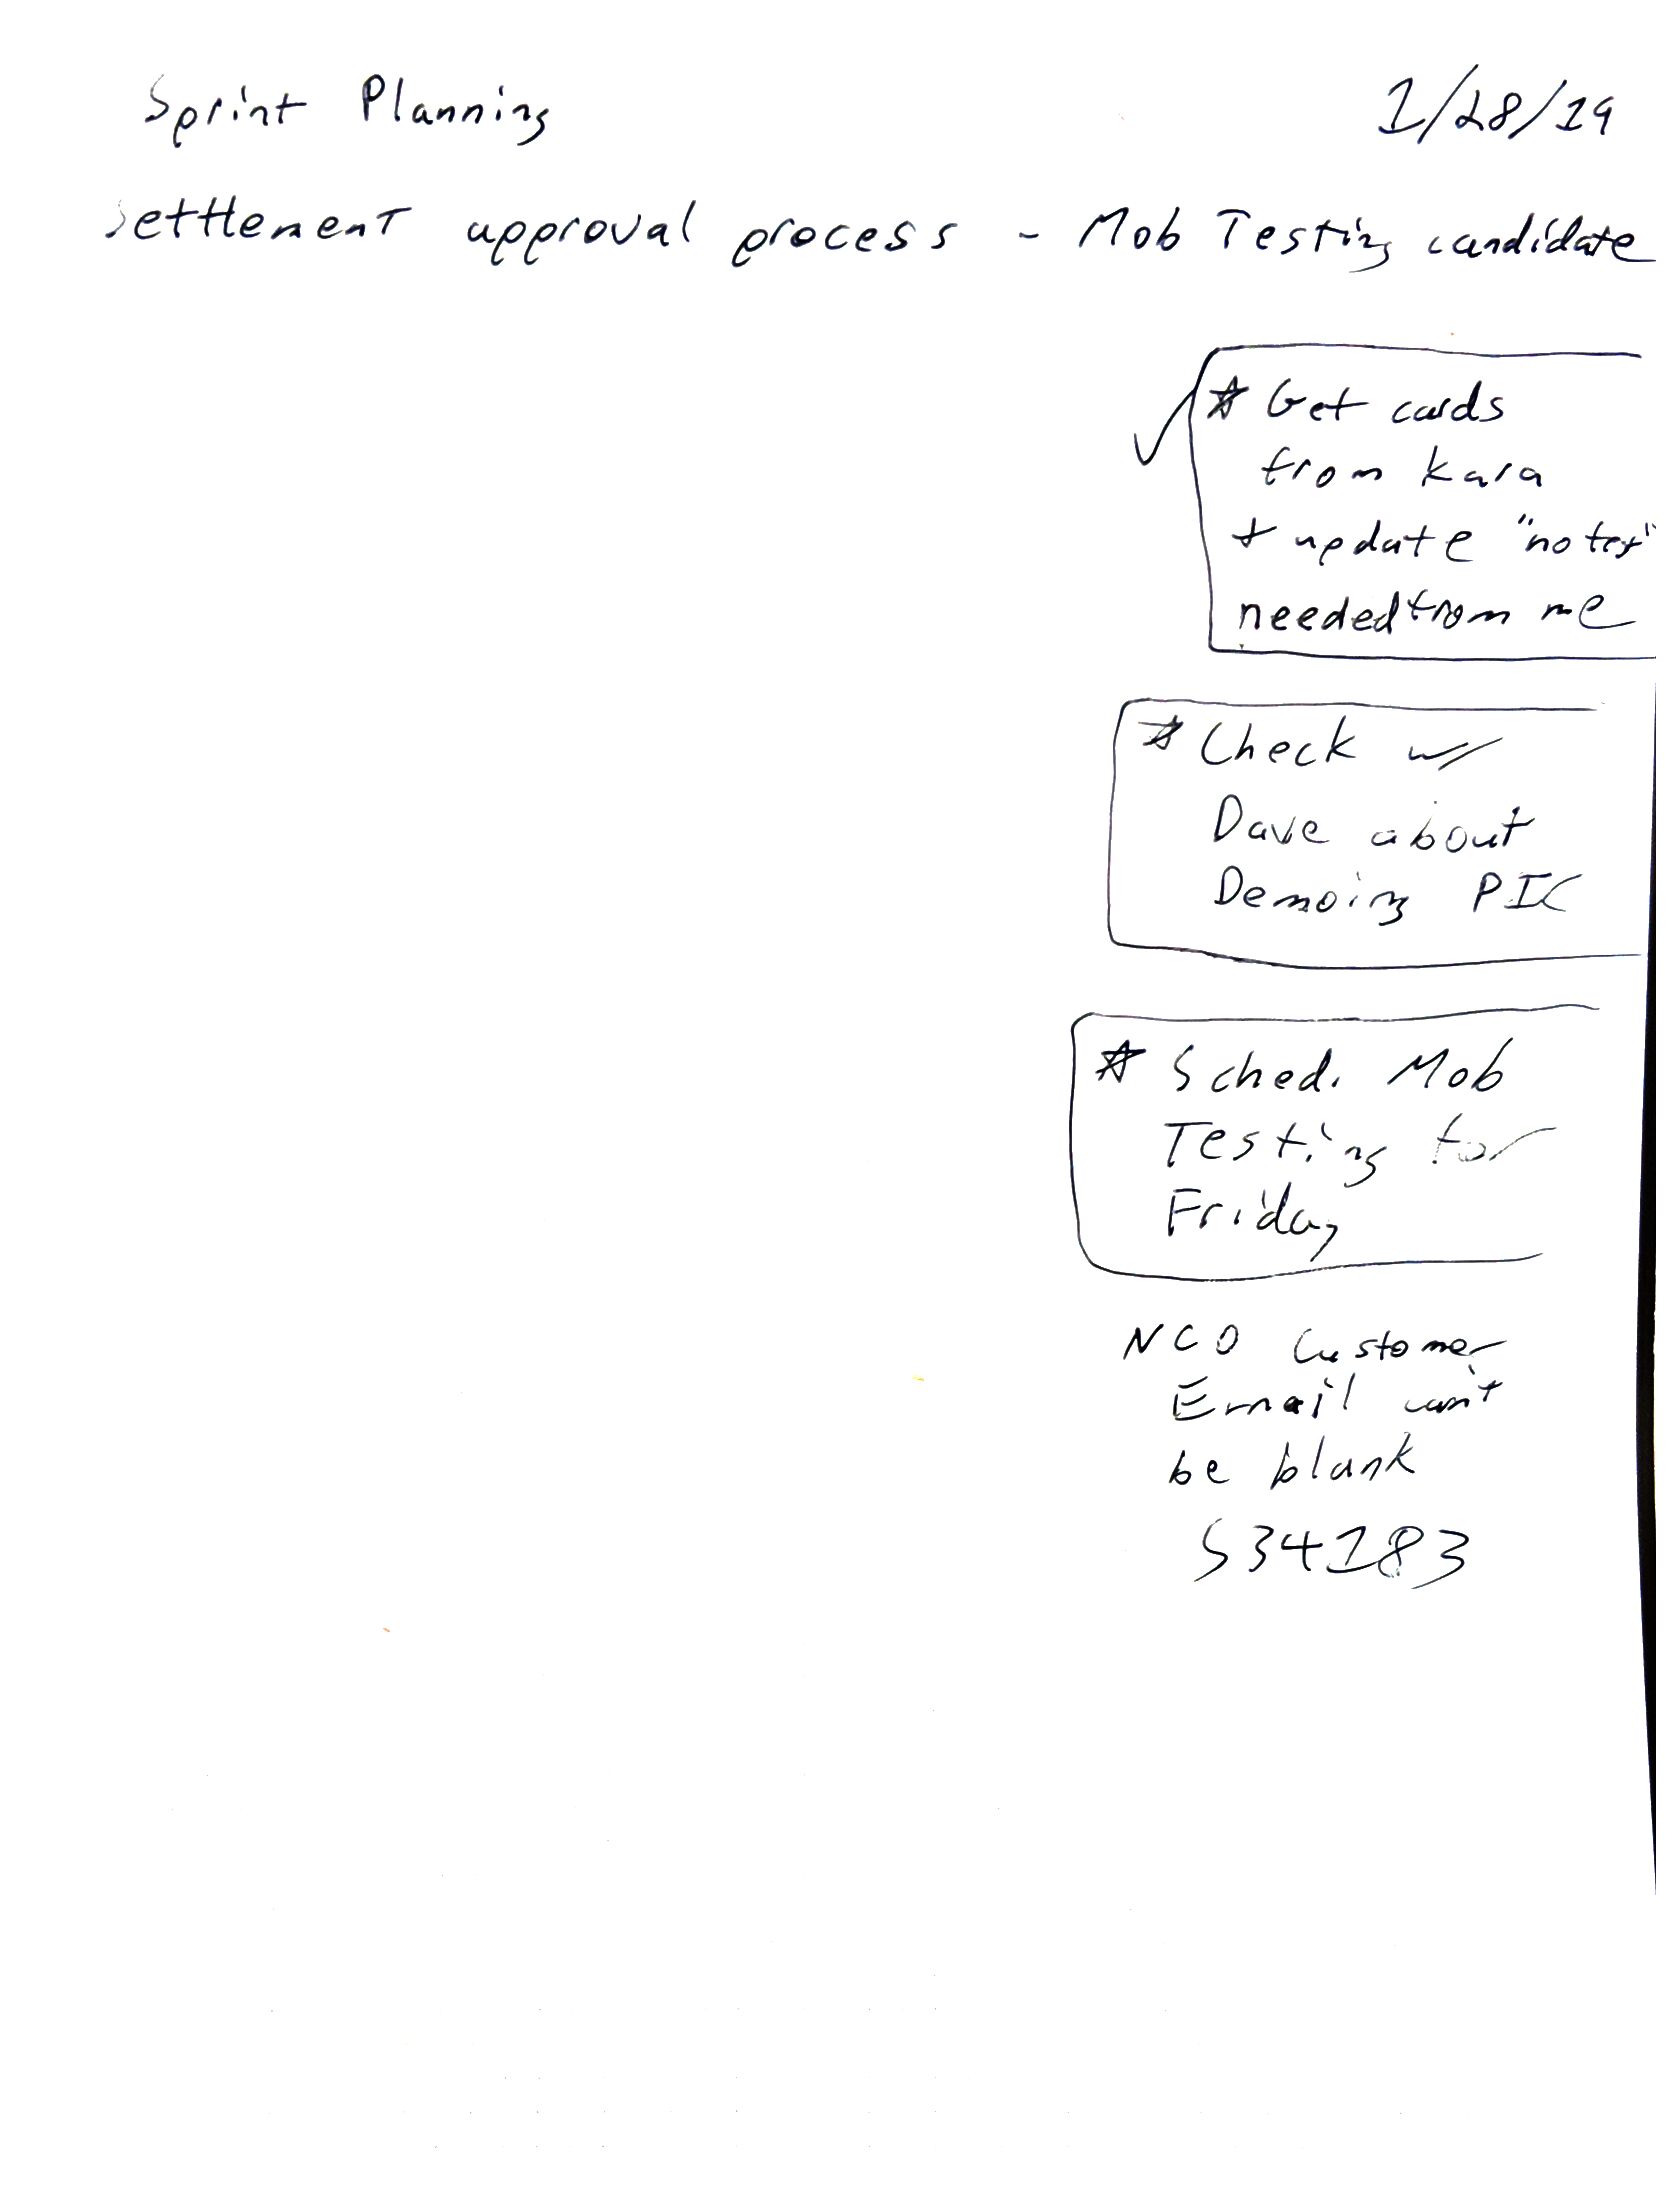 Sprint Planning 1/28/19
Settlement approval process - Mob Testing candidate
* Get cards
from Kara
+ update "notes"
needed from me
* Check w/
Dave about
Demoing PIC
* Sched. Mob
Testing for
Friday
NCO Customer
Email can't
be blank
S34183